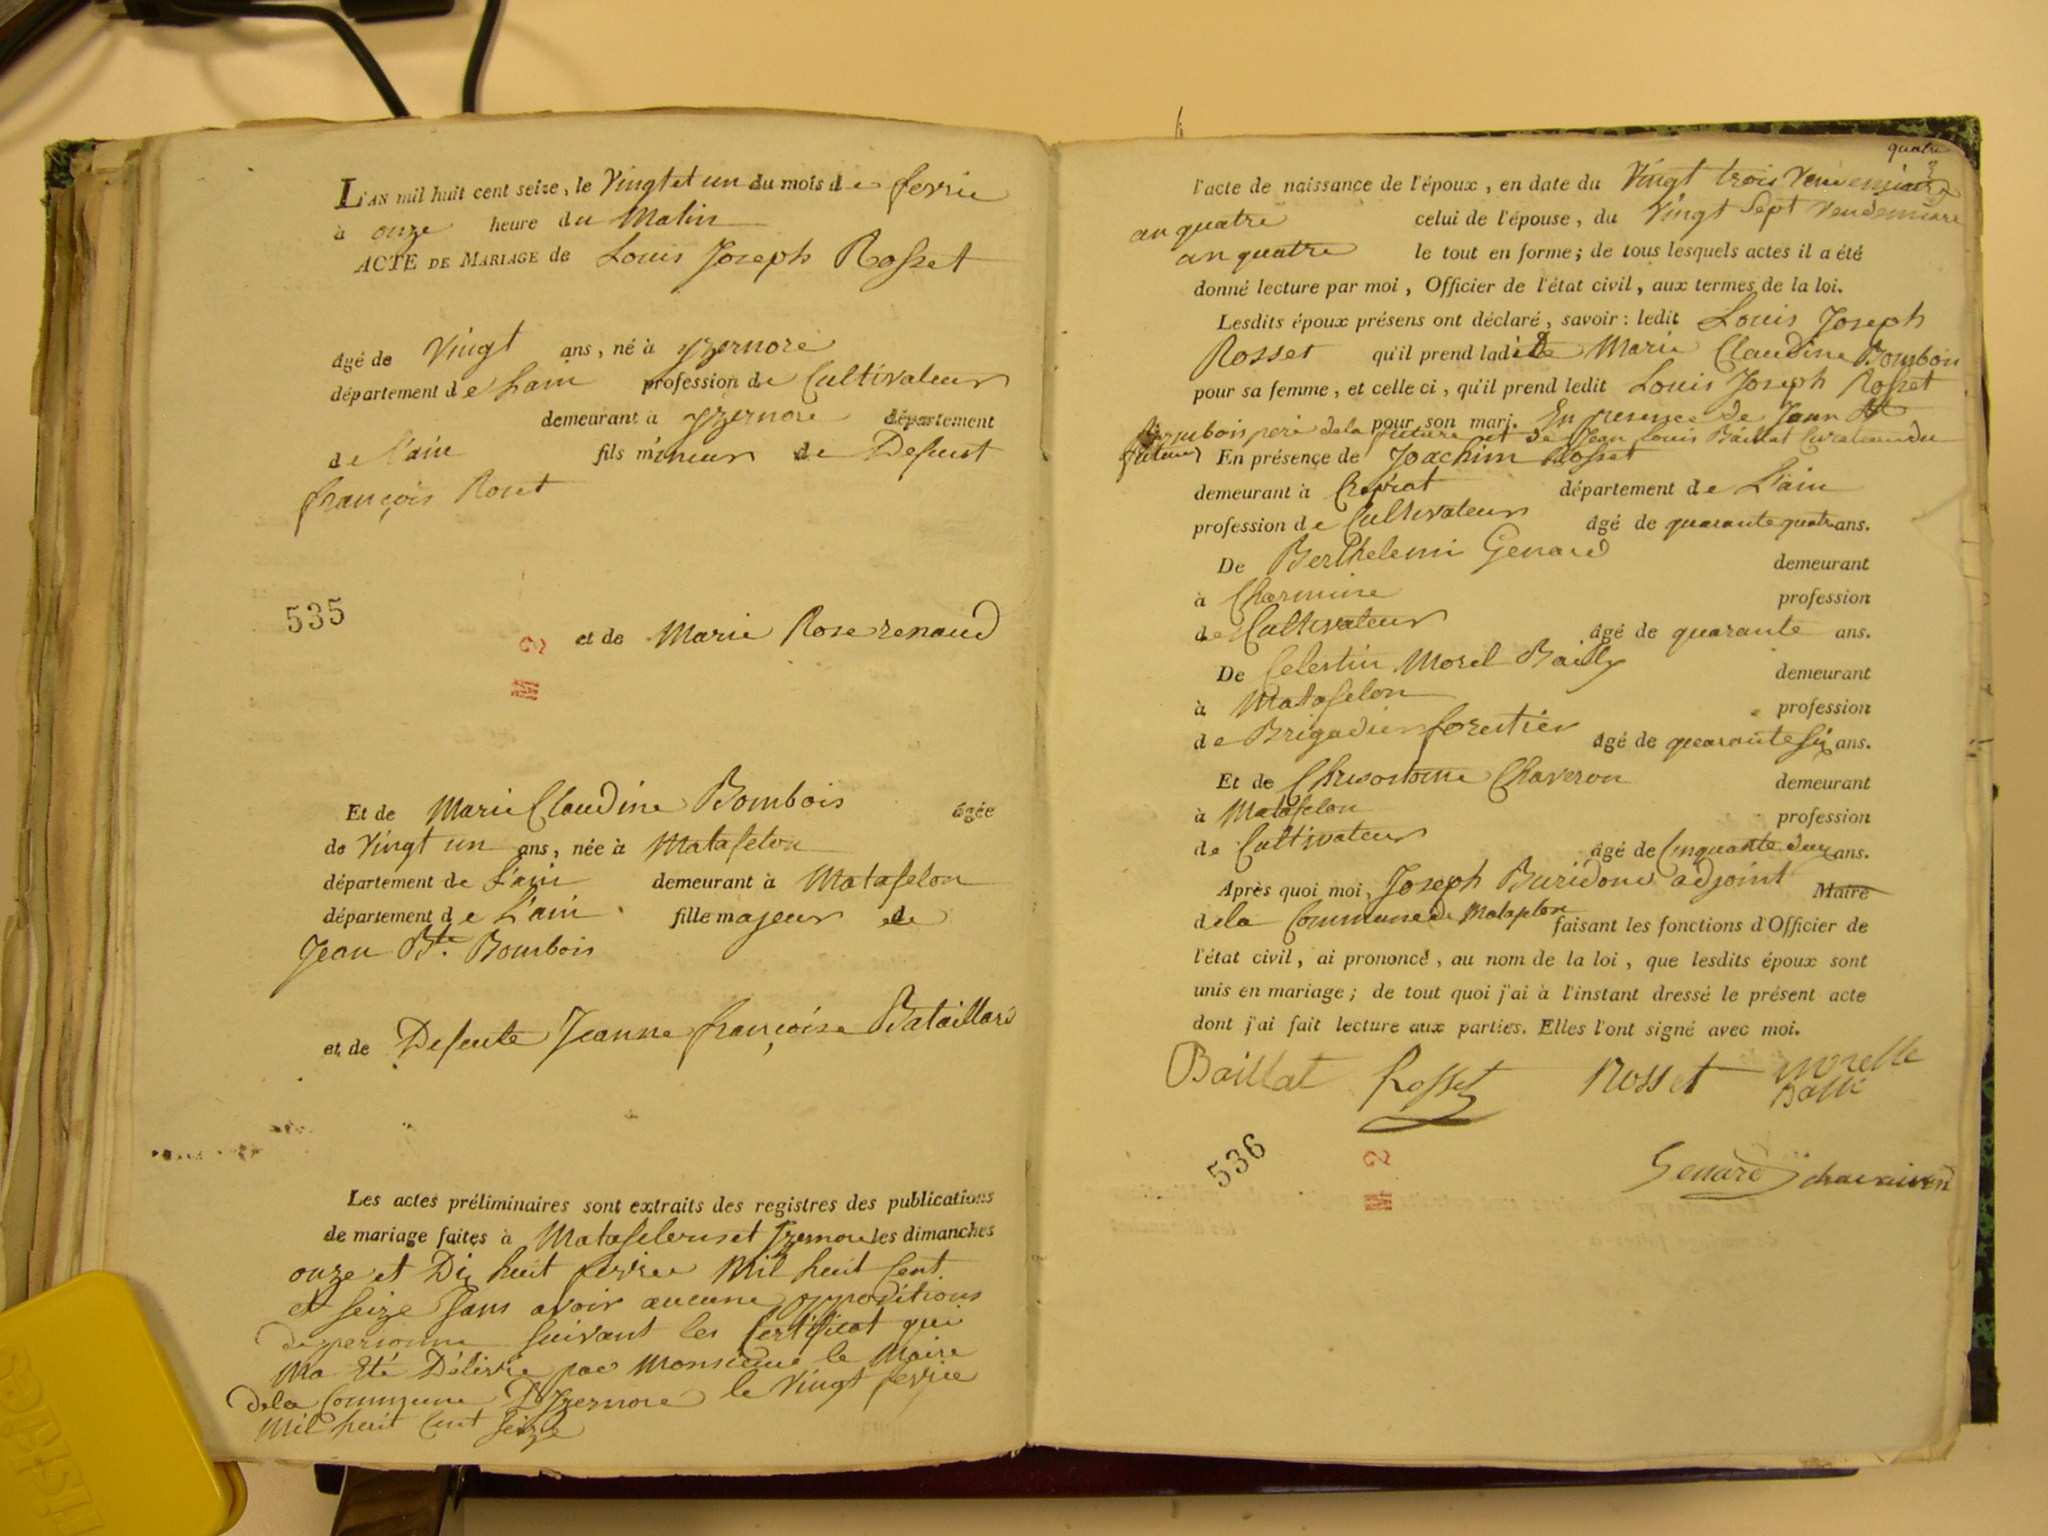 L'AN mil huit cent seize, le Vingt et un du mois de fevrie
à onze heure du Matin
ACTE DE MARIAGE de Louis Joseph Rosset
âgé de Vingt ans, né à yzernore
département de Lain profession de Cultivateur
demeurant à yzernore département
de l'ain fils mineur de Defunt
françois Roset
535
et de Marie Rose renaud
2
M
Et de Marie Claudine Bombois âgée
de Vingt un ans, née à Matafelon
département de L'ain demeurant à Matafelon
département de L'ain fille majeur de
Jean Bte. Bombois
et de Defunte Jeanne françoise Bataillard
Les actes préliminaires sont extraits des registres des publications
de mariage faites à Matafelon et Izernore les dimanches
onze et Dix huit fevrie Mil huit Cent
et Seize Sans avoir aucune oppositions
de personne suivant les Certificat qui
Ma été Délivré par Monsieur le Maire
dela Commune D'yzernore le Vingt fevrie
Mil huit Cent Seize
quatre
l'acte de naissance de l'époux, en date du Vingt trois Vendemiaire
an quatre celui de l'épouse, du Vingt Sept Vendemiare
an quatre le tout en forme; de tous lesquels actes il a été
donné lecture par moi, Officier de l'état civil, aux termes de la loi.
Lesdits époux présens ont déclaré, savoir: ledit Louis Joseph
Rosset qu'il prend ladite Marie Claudine Bombois
pour sa femme, et celle ci, qu'il prend ledit Louis Joseph Rosset
pour son mari. En presence de Jean Bte
Bombois pere dela future et de Jean Louis Baillat Curateur du
futeur En présence de Joachim Rosset
demeurant à Ceyssiat département de L'ain
profession de Cultivateur âgé de quarante quatre ans.
De Berthelemi Genard demeurant
à Charmine profession
de Cultivateur âgé de quarante ans.
De Celestin Morel Bailly demeurant
à Matafelon profession
de Brigadier forestier âgé de quarante Six ans.
Et de Chrisostome Chaveron demeurant
à Matafelon profession
de Cultivateur âgé de Cinquante deux ans.
Après quoi moi, Joseph Buridond adjoint Maire
dela Commune de Matafelon faisant les fonctions d'Officier de
l'état civil, ai prononcé, au nom de la loi, que lesdits époux sont
unis en mariage; de tout quoi j'ai à l'instant dressé le présent acte
dont j'ai fait lecture aux parties. Elles l'ont signé avec moi.
Baillat Rosset Rosset morelle
Balli
536
2
M
Genard